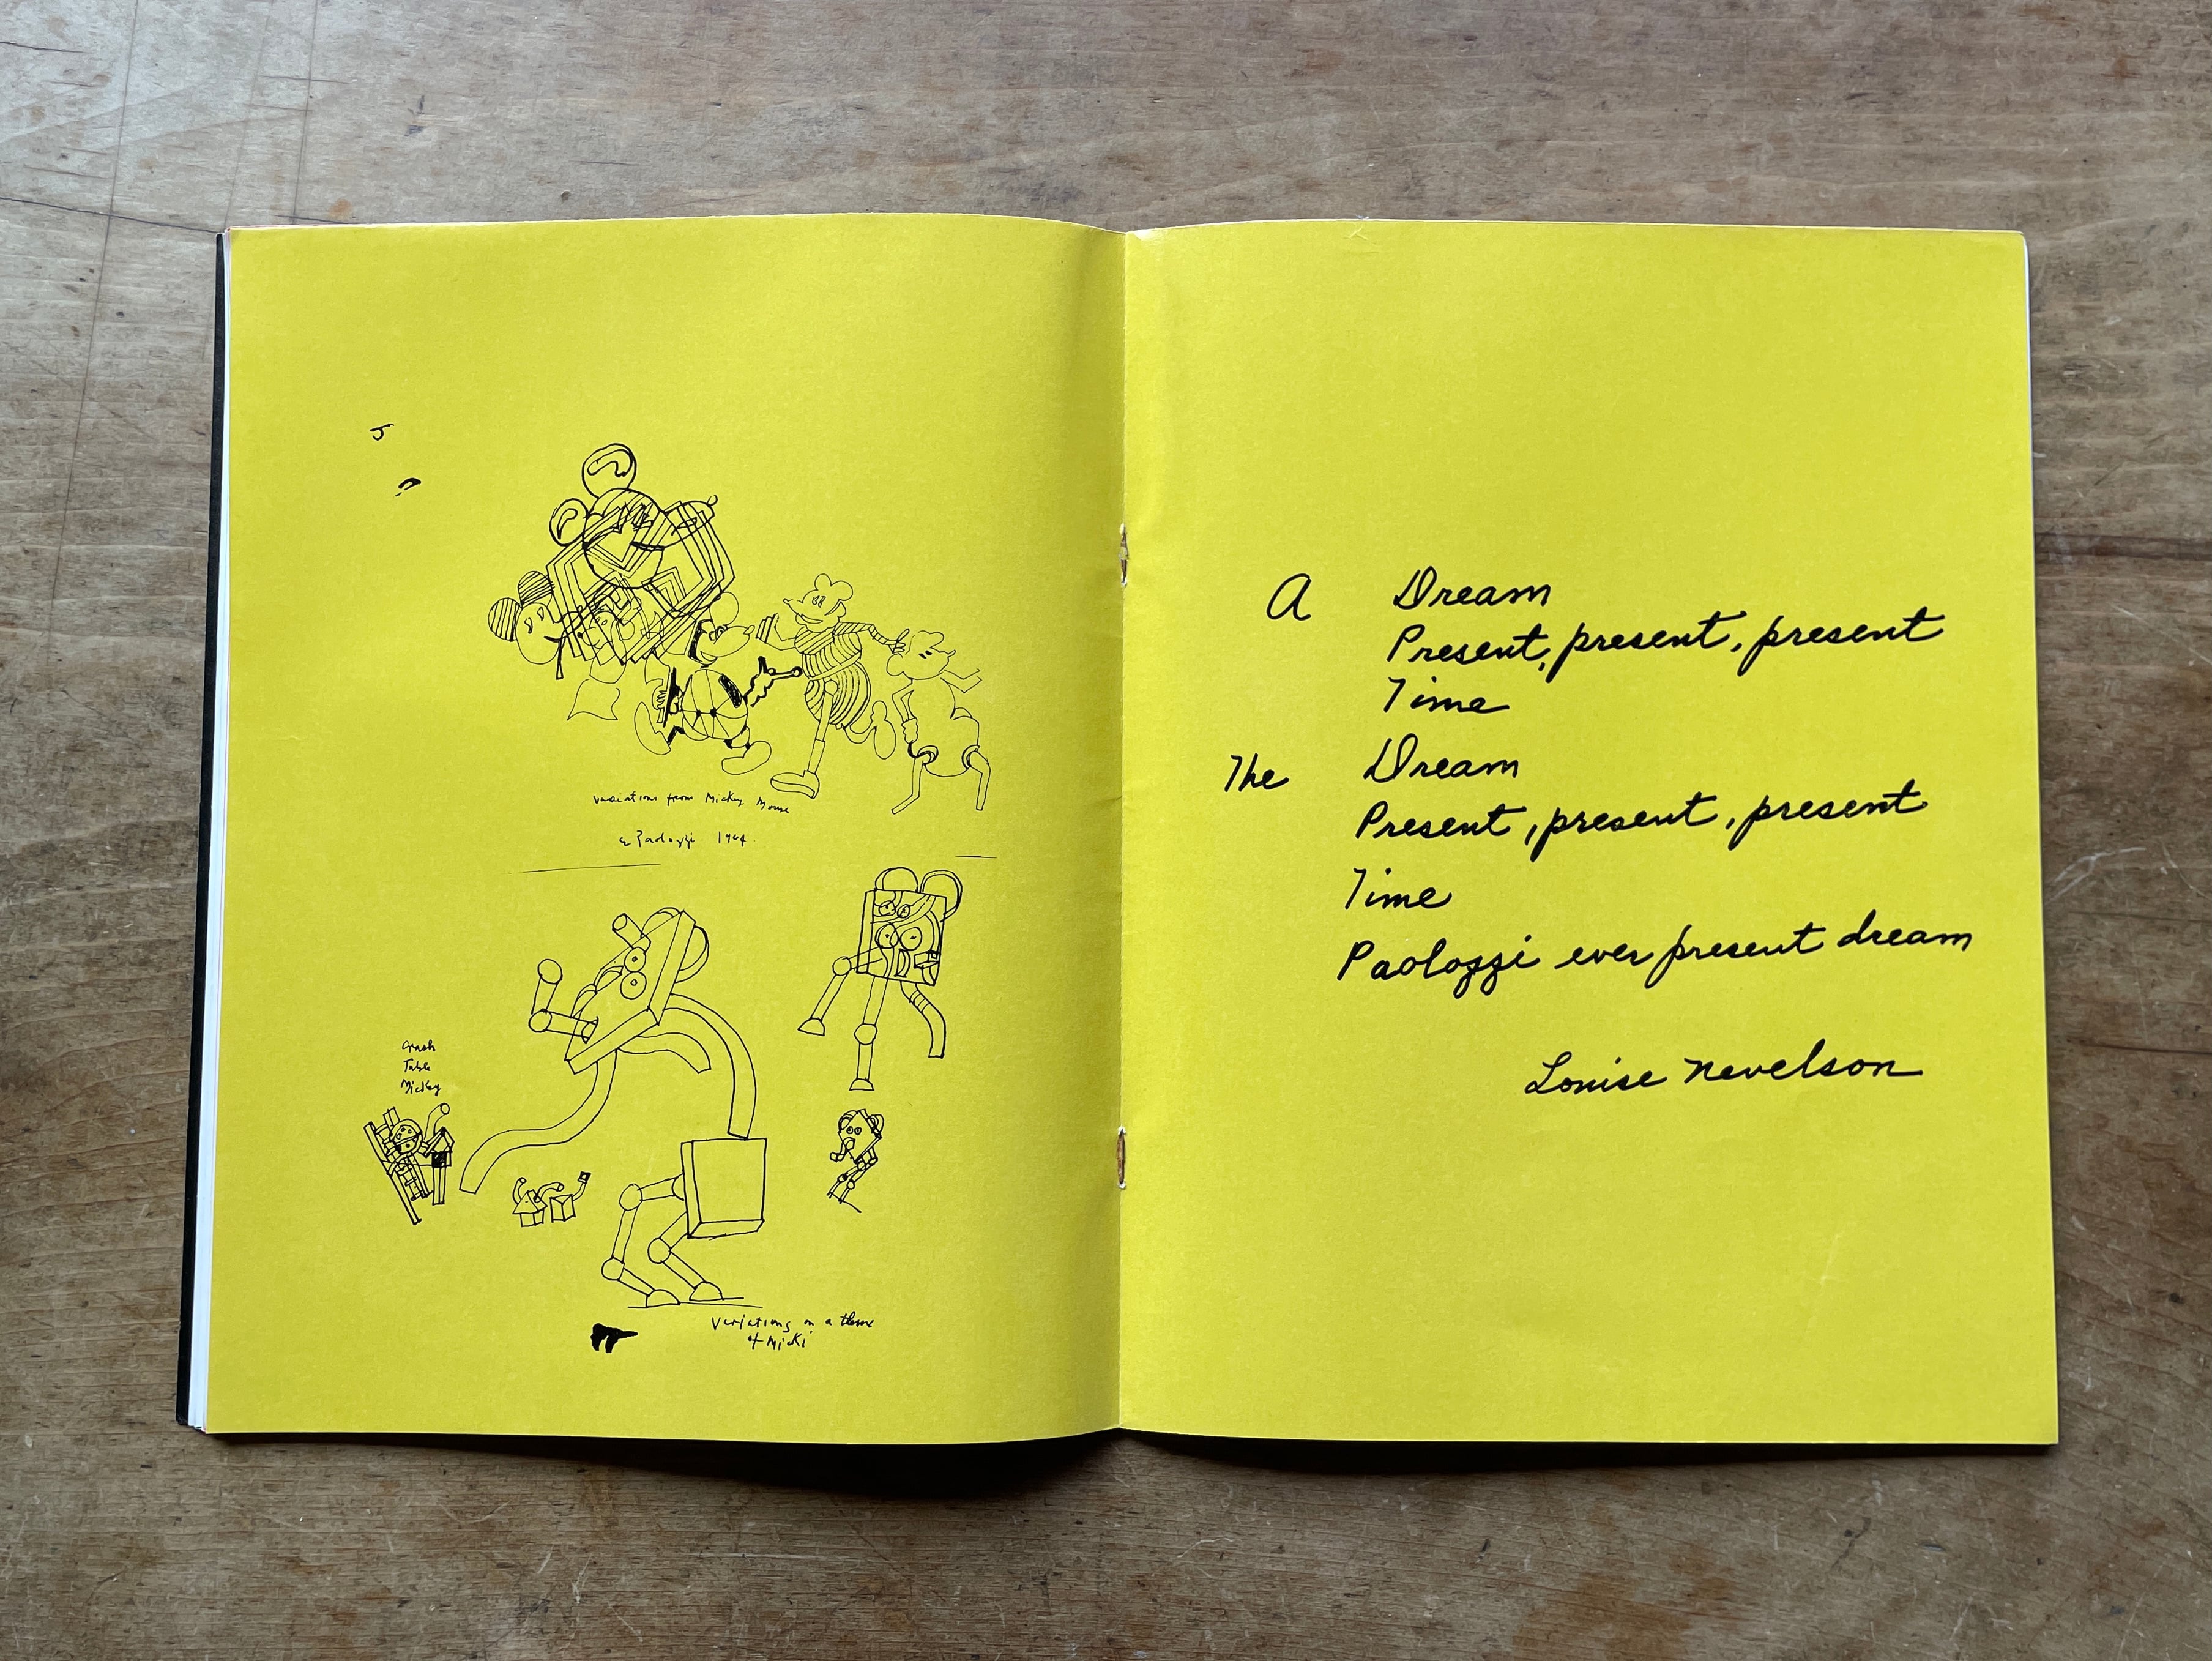 variations from Mickey Mouse
E Paolozzi 1964.
Crash
Table
Mickey
Variations on a theme
of Micki
A Dream
Present, present, present
Time
The Dream
Present, present, present
Time
Paolozzi ever present dream
Louise Nevelson